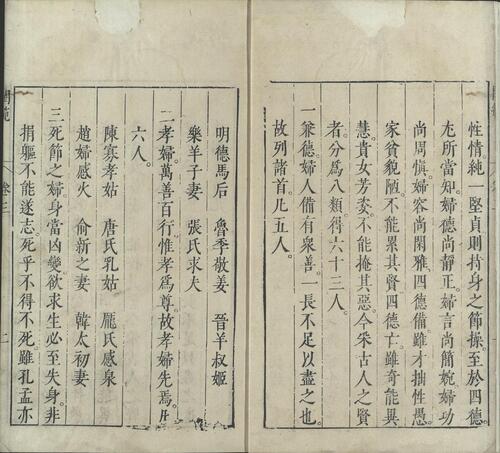 性情純一堅貞則持身之節操至於四德
尤所當知婦德尚靜正婦言尚簡婉婦功
尚周慎婦容尚閑雅四德備雖才拙性愚
家貧貌陋不能累其賢四德亡雖奇能異
慧貴女芳姿不能掩其惡今采古人之賢
者分爲八類得六十三人。
一兼德婦人備有衆善一長不足以盡之也。
故列諸首凡五人。
明德馬后 魯季敬姜 晉羊叔姬
樂羊子妻 張氏求夫
二孝婦萬善百行惟孝爲尊故孝婦先焉凡
六人。
陳寡孝姑 唐氏乳姑 龐氏感泉
趙婦感火 俞新之妻 韓太初妻
三死節之婦身當凶變欲求生必至失身非
捐軀不能遂志死乎不得不死雖孔孟亦
卷三